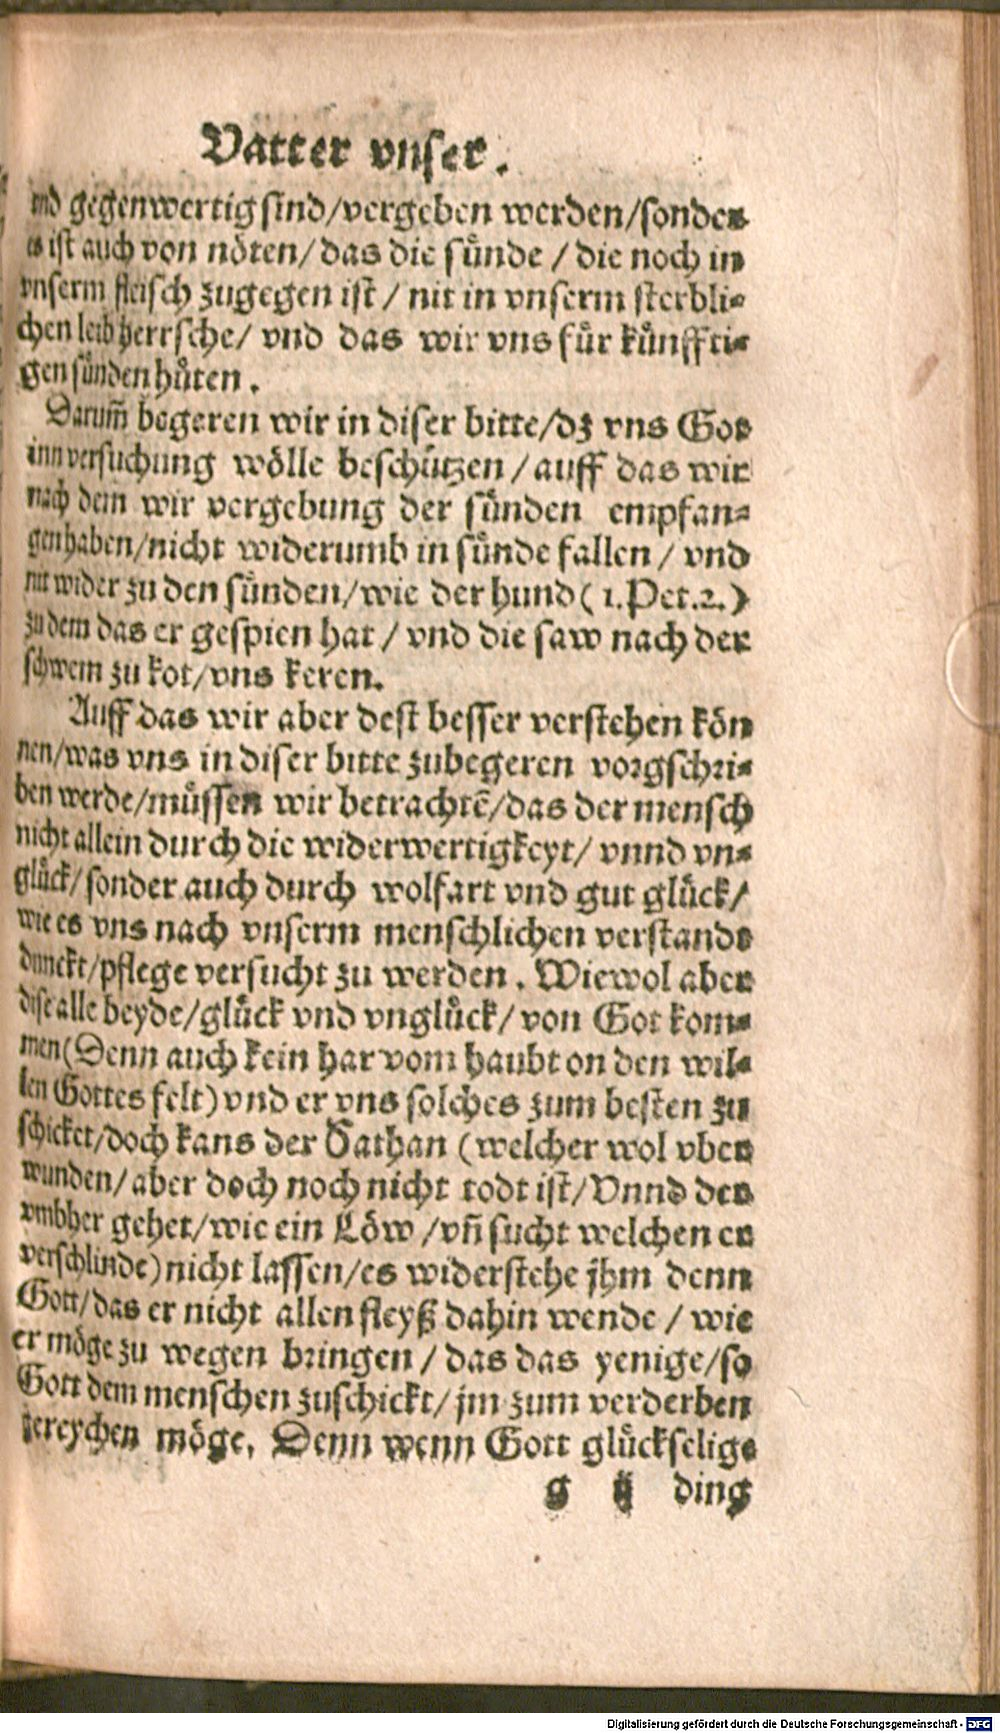 Vatter vnser.
vnd gegenwertig sind/vergeben werden/sonder
es ist auch von nöten/das die sünde/die noch in
vnserm fleisch zugegen ist/nit in vnserm sterbli-
chen leib herrsche/vnd das wir vns für künffti-
gen sünden hüten.
Darum̄ begeren wir in diser bitte/dz vns Got
inn versuchung wölle beschützen/auff das wir
nach dem wir vergebung der sünden empfan-
gen haben/nicht widerumb in sünde fallen/vnd
nit wider zu den sünden/wie der hund(1.Pet.2.)
zu dem das er gespien hat/vnd die saw nach der
schwem zu kot/vns keren.
Auff das wir aber dest besser verstehen kön
nen/was vns in diser bitte zubegeren vorgschri-
ben werde/müssen wir betrachtē/das der mensch
nicht allein durch die widerwertigkeyt/vnnd vn-
glück/sonder auch durch wolfart vnd gut glück/
wie es vns nach vnserm menschlichen verstande
dunckt/pflege versucht zu werden. Wiewol aber
dise alle beyde/glück vnd vnglück/von Got kom-
men(Denn auch kein har vom haubt on den wil-
len Gottes felt)vnd er vns solches zum besten zu
schicket/doch kans der Sathan(welcher wol vber
wunden/aber doch noch nicht todt ist/Vnnd der
vmbher gehet/wie ein Löw/vn̄ sucht welchen er
verschlinde)nicht lassen/es widerstehe jhm denn
Gott/das er nicht allen fleyß dahin wende/wie
er möge zu wegen bringen/das das yenige/so
Gott dem menschen zuschickt/jm zum verderben
gereychen möge. Denn wenn Gott glückselige
g ij ding
Digitalisierung gefördert durch die Deutsche Forschungsgemeinschaft - DFG